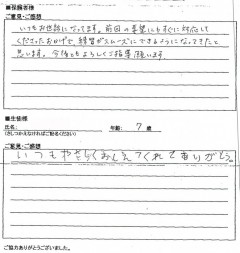 ■保護者様
ご意見・ご感想
いつもお世話になってます。前回の要望にもすぐに対応して
くださったおかげで、練習がスムーズにできるようになってきたと
思います。今後ともよろしくご指導願います。
■生徒様
氏名: 年齢: 7 歳
(さしつかえなければご記名ください)
ご意見・ご感想
いつもやさしくおしえてくれてありがとう。
ご協力ありがとうございました。